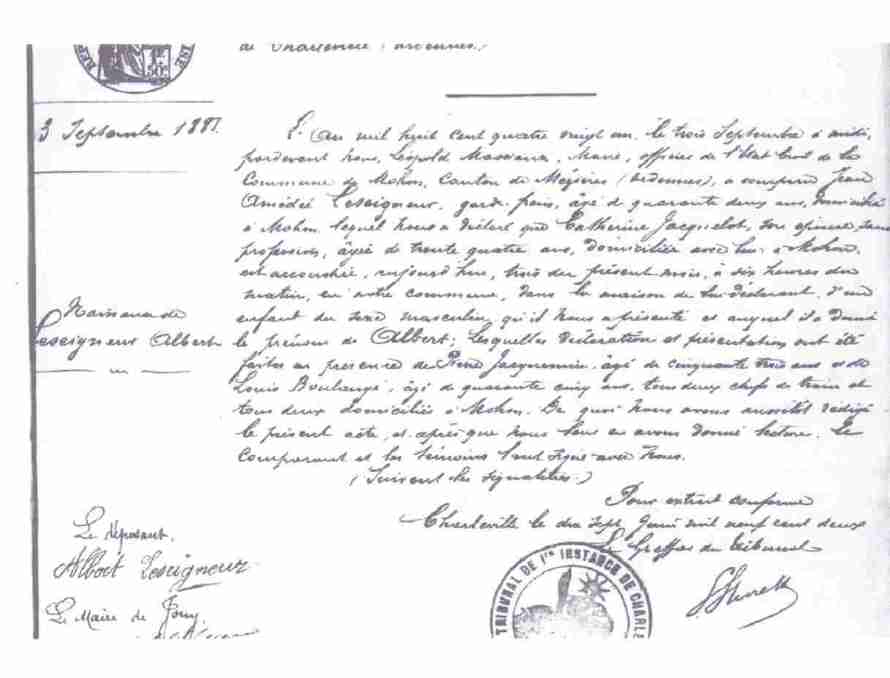 de Charleville (Ardennes)
50c
3 Septembre 1881.
L'An mil huit cent quatre vingt un, le trois Septembre à midi,
pardevant Nous, Léopold Maire, officier de l'Etat Civil de la
Commune de Mohon, Canton de Mézières (Ardennes), a comparu Jean
Amédée Leseigneur, garde frein, âgé de quarante deux ans, domicilié
à Mohon, lequel Nous a déclaré que Catherine Jacquelot, son épouse, sans
profession, âgée de trente quatre ans, domiciliée avec lui à Mohon,
est accouchée, aujourd'hui, trois du présent mois, à six heures du
matin, en notre commune, dans la maison de lui déclarant, d'un
enfant du sexe masculin, qu'il Nous a présenté et auquel il a donné
le prénom de Albert; Lesquelles déclaration et présentation ont été
faites en présence de Pierre Jacquemin, âgé de cinquante trois ans et de
Louis Boulanger, âgé de quarante cinq ans, tous deux chefs de train et
tous deux domiciliés à Mohon. De quoi Nous avons aussitôt rédigé
le présent acte, et après que Nous leur en avons donné lecture, Le
Comparant et les témoins l'ont signé avec Nous.
(Suivent les signatures)
Naissance de
Leseigneur Albert
Pour extrait conforme
Charleville le dix sept Juin mil neuf cent deux
Le Greffier du Tribunal
Le déposant,
Albert Leseigneur
Le Maire de
TRIBUNAL DE 1re INSTANCE DE CHARLE